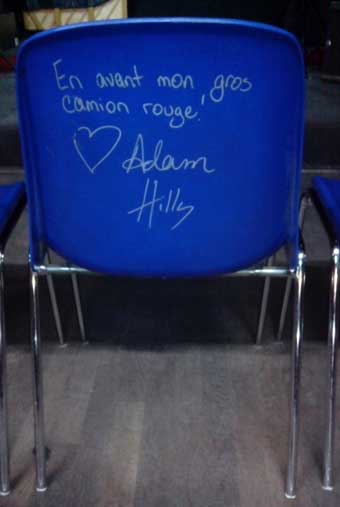 En avant mon gros
camion rouge!
♡ Adam
Hills